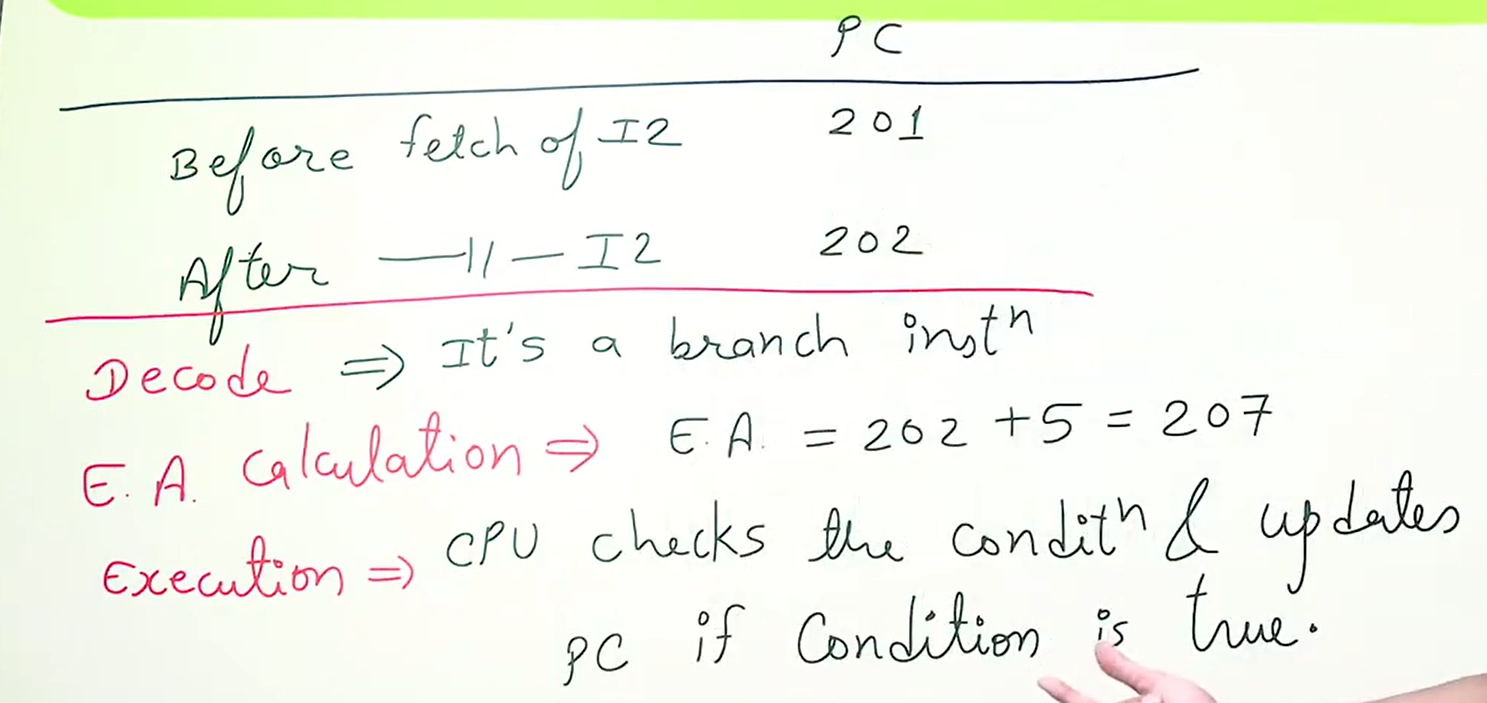 PC
Before fetch of I2 201
After —〃— I2 202
Decode ⇒ It's a branch instn
E.A. Calculation ⇒ E.A. = 202 + 5 = 207
Execution ⇒ CPU checks the conditn & updates
PC if Condition is true.